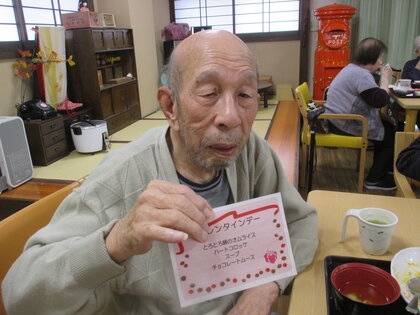 レンタインデー
とろとろ卵のオムライス
ハートコロッケ
スープ
チョコレートムース
POST